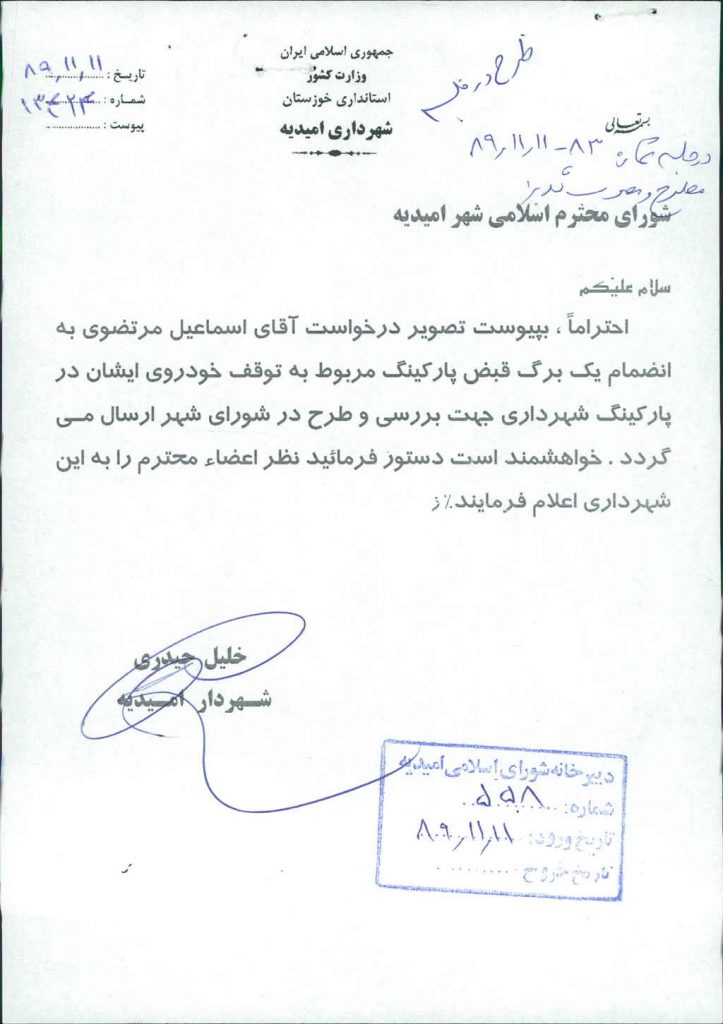 جمهوری اسلامی ایران
وزارت کشور
استانداری خوزستان
شهرداری امیدیه
تاریخ : ۸۹،۱۱،۱۱
شماره :
پیوست :
طرح در
بسمه تعالی
۸۳ - ۸۹،۱۱،۱۱
مطرح و
شورای محترم اسلامی شهر امیدیه
سلام علیکم
احتراماً ، بپیوست تصویر درخواست آقای اسماعیل مرتضوی به
انضمام یک برگ قبض پارکینگ مربوط به توقف خودروی ایشان در
پارکینگ شهرداری جهت بررسی و طرح در شورای شهر ارسال می
گردد . خواهشمند است دستور فرمائید نظر اعضاء محترم را به این
شهرداری اعلام فرمایند٪ز
خلیل حیدری
شهردار امیدیه
دبیرخانه شورای اسلامی امیدیه
شماره:
تاریخ ورود: ۸۹،۱۱،۱۱
تاریخ خروج